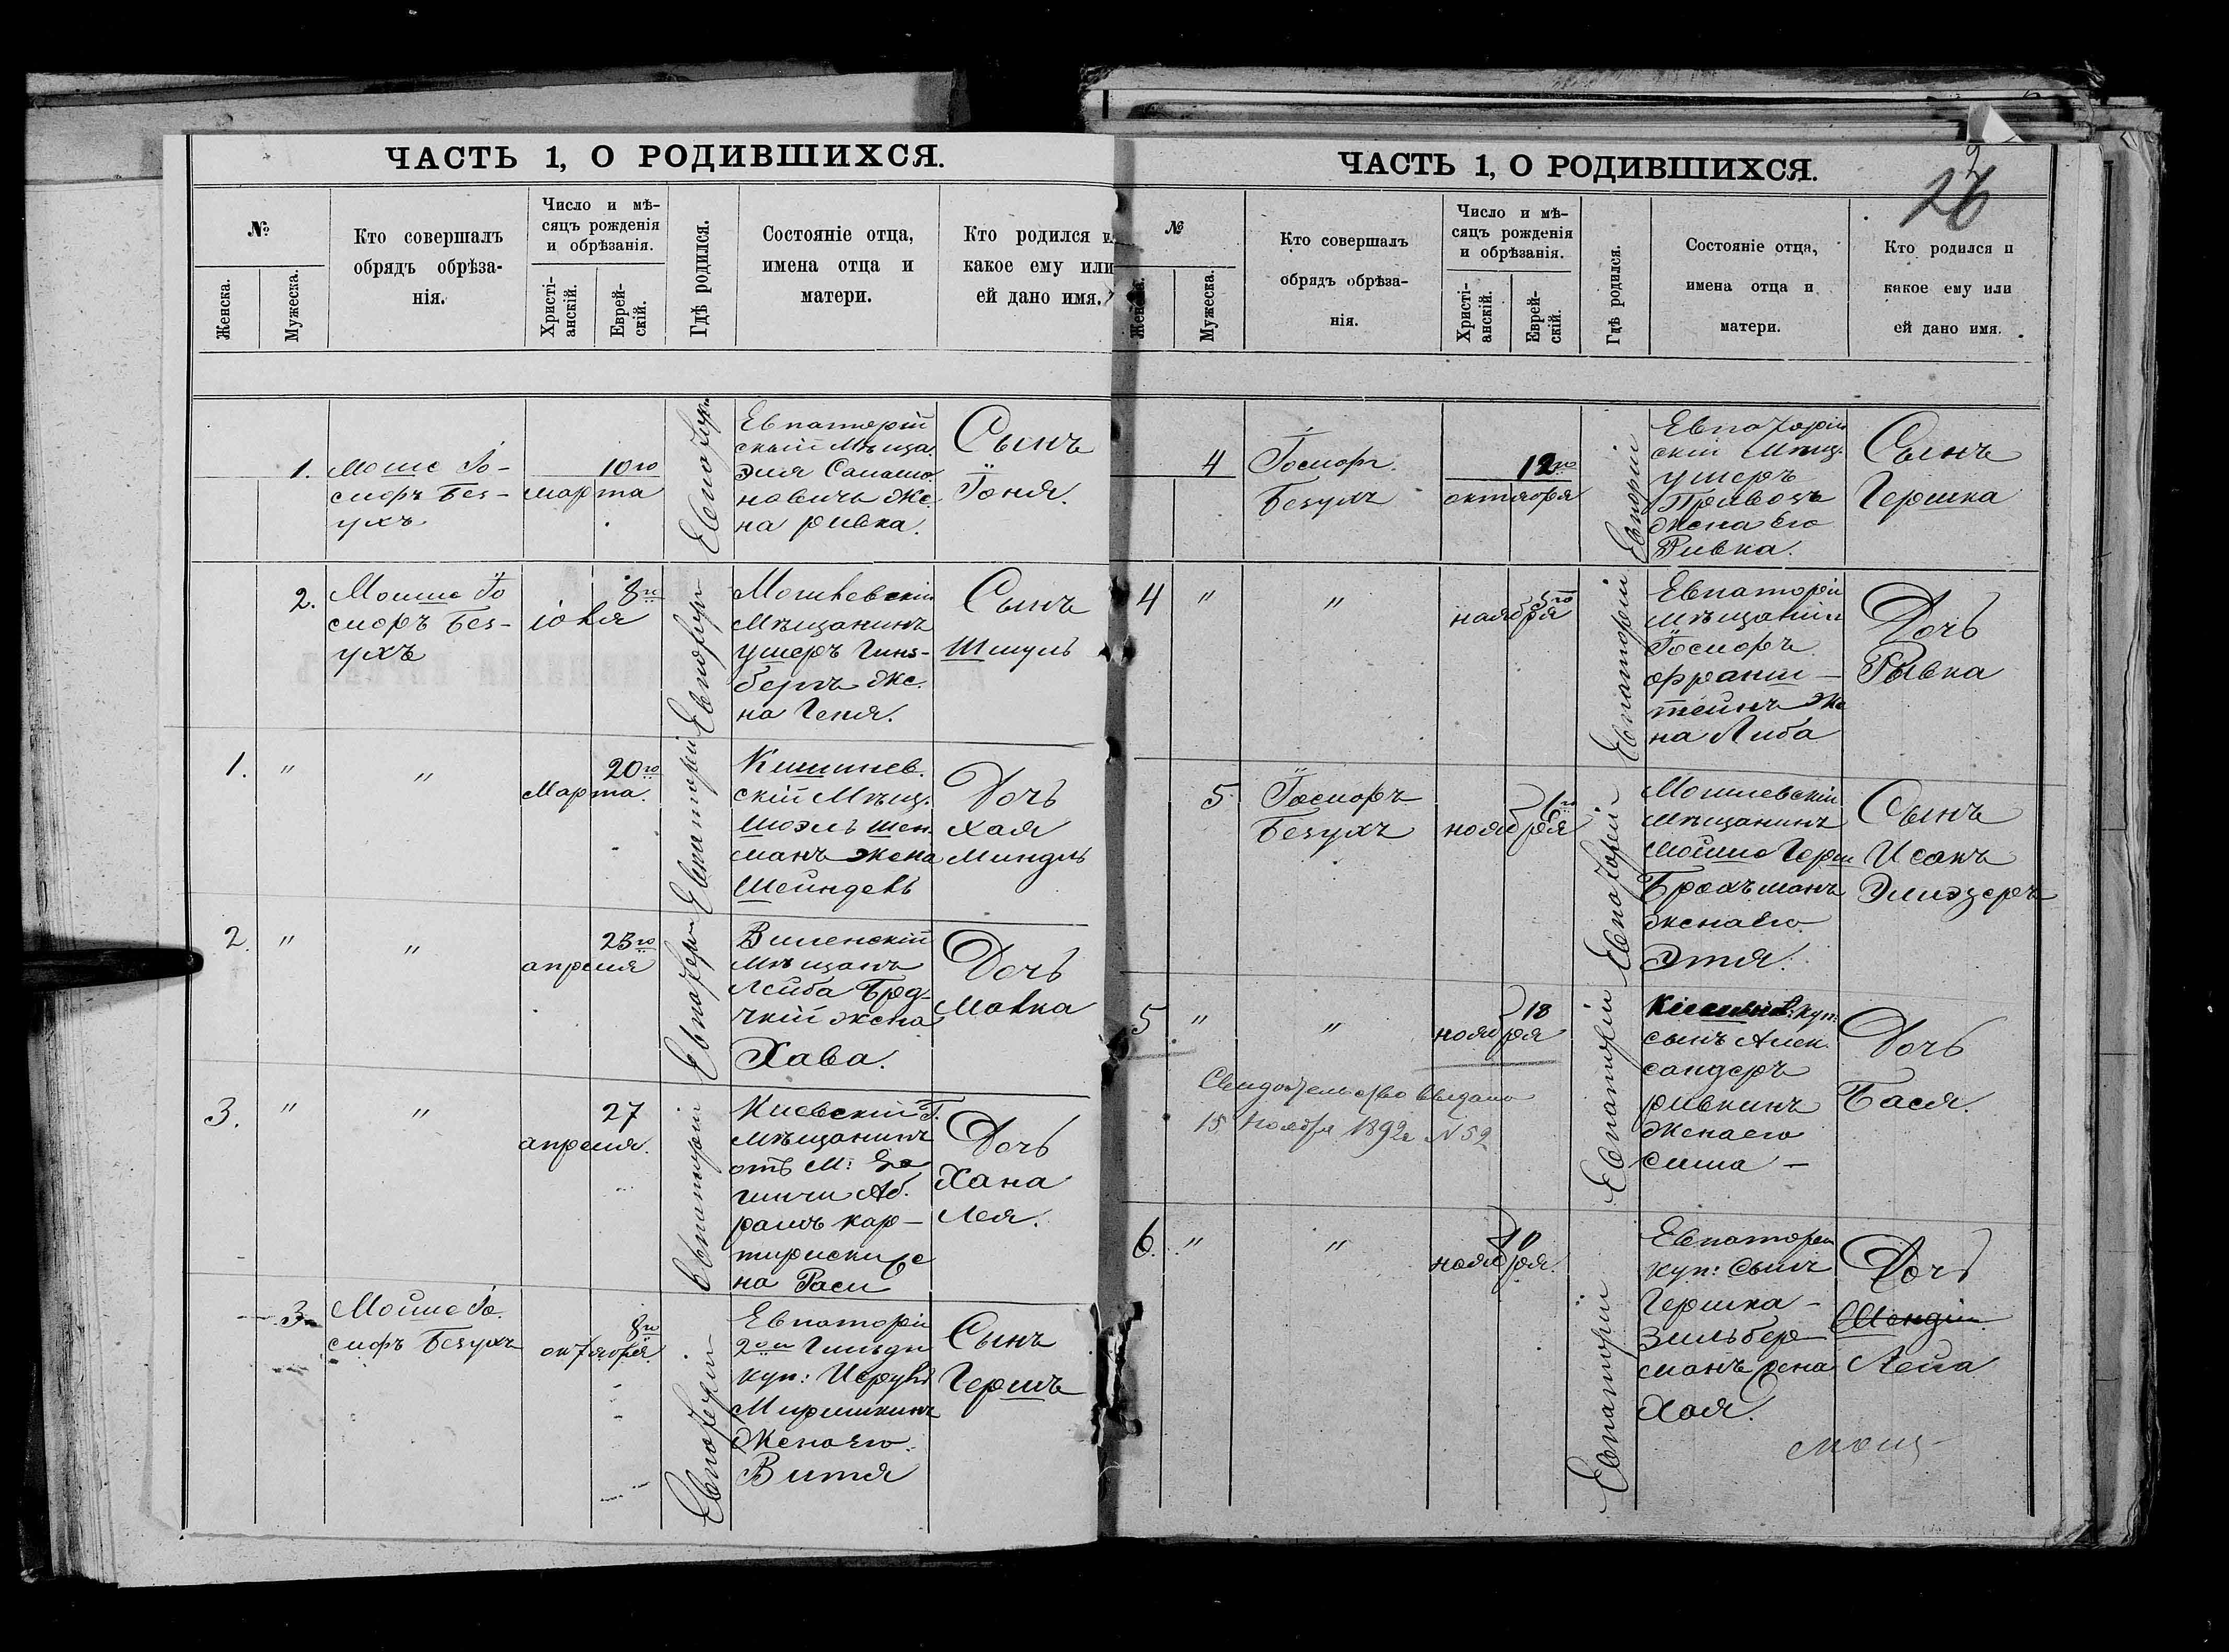 ЧАСТЬ 1, О РОДИВШИХСЯ.
№
Женска.
Мужеска.
Кто совершалъ
обрядъ обрѣза-
нія.
Число и мѣ-
сяцъ рожденія
и обрѣзанія.
Христі-
анскій.
Еврей-
скій.
Гдѣ родился.
Состояніе отца,
имена отца и
матери.
Кто родился и
какое ему или
ей дано имя.
1.
Моше Іо-
сифъ Без-
ухъ
10го
марта
Евпаторіи
Евпаторій
скій Мѣща.
Эля Саламо
новичъ Же
на ривка.
Сынъ
Іоня.
2.
Моише Іо
сифъ Без-
ухъ
8го
іюля
Евпаторіи
Могилевскій
Мѣщанинъ
Ушеръ Гинз-
бергъ Же.
на Геня.
Сынъ
Шмуль
1. " "
20го
Марта.
Евпаторіи
Кишинев.
скій Мѣщ.
Шоэль Шен.
манъ Жена
Шейндель
Дочь
Хая
Миндль
2. " "
23го
апреля
Евпаторіи
Виленскій
Мѣщанъ
Лейба Брод-
чкій жена
Хава.
Дочь
Малка
3. " "
27
апреля.
Евпаторіи
Киевскій Г.
мѣщанинъ
отъ М:
Аб.
рамъ
на Раси
Дочь
Хана
Лея.
3
Мойше Іо.
сифъ Безухъ
8го
октября.
Евпаторіи
Евпаторіи
2ой Гильди
куп: Исруль
Миришкинъ
Жена его.
Витя
Сынъ
Гершъ
ЧАСТЬ 1, О РОДИВШИХСЯ.
2
26
№
Женска.
Мужеска.
Кто совершалъ
обрядъ обрѣза-
нія.
Число и мѣ-
сяцъ рожденія
и обрѣзанія.
Христі-
анскій.
Еврей-
скій.
Гдѣ родился.
Состояніе отца,
имена отца и
матери.
Кто родился и
какое ему или
ей дано имя.
4
Іосифъ.
Безухъ
12го
октября
Евпаторіи
Евпаторій
скій Мѣщ.
ушеръ
Привозъ
жена Его
Ривка.
Сынъ
Гершка
4 " "
5го
наября
Евпаторіи
Евпаторіи
мѣщанинъ
Іосифъ
Франш-
тейнъ Же
на Либа
Дочь
Рывка
5
Іосифъ
Безухъ
6го
ноября
Евпаторіи
Могилевскій
мѣщанинъ
Мойше Герш
Брохъманъ
жена Его.
Этя.
Сынъ
Исакъ
Элиэзеръ
5 " "
18
ноября
Евпаторіи
Кишинев: Куп:
сынъ Алек.
сандеръ
ривкинъ
Жена его
Сима -
Дочь
Бася.
Свидѣтельство выдано
15 Ноября 1892г N 52
6. " "
ноября.
Евпаторіи
Евпаторіи
куп: Сынъ
Гершка -
Зильбер
манъ жена
Хая.
Дочь
Лейа